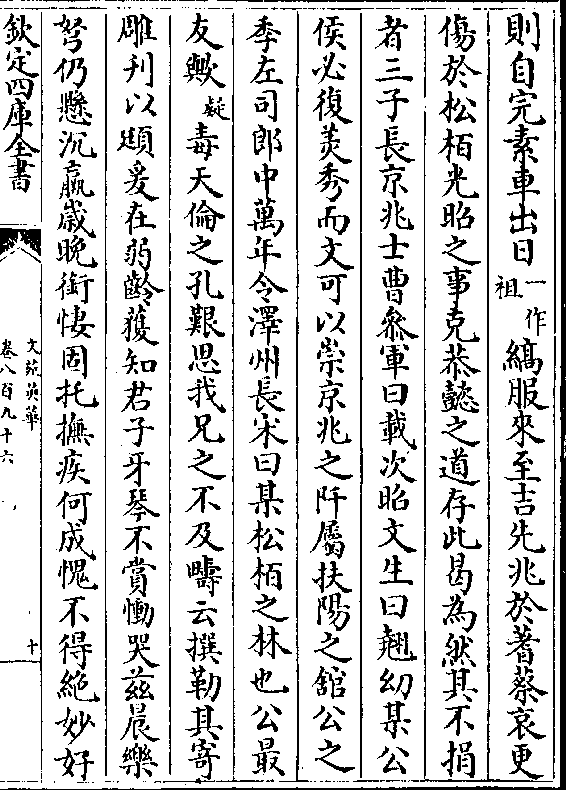 則自完素車出日一作祖縞服來至吉先兆於蓍蔡哀更
傷於松栢光昭之事克恭懿之道存此曷為然其不捐
者三子長京兆士曹叅軍曰載次昭文生曰翹幼某公
侯必復羙秀而文可以崇京兆之阡屬扶陽之舘公之
季左司郎中萬年令澤州長宋曰某松栢之林也公最
友歟疑毒天倫之孔艱思我兄之不及疇云撰勒其寄
雕刊以頲爰在弱齡獲知君子牙琴不賞慟哭兹晨樂
弩仍懸沉羸歳晩銜悽固托撫疾何成愧不得絶妙好
欽定四庫全書
文苑英華
卷八百九十六
十